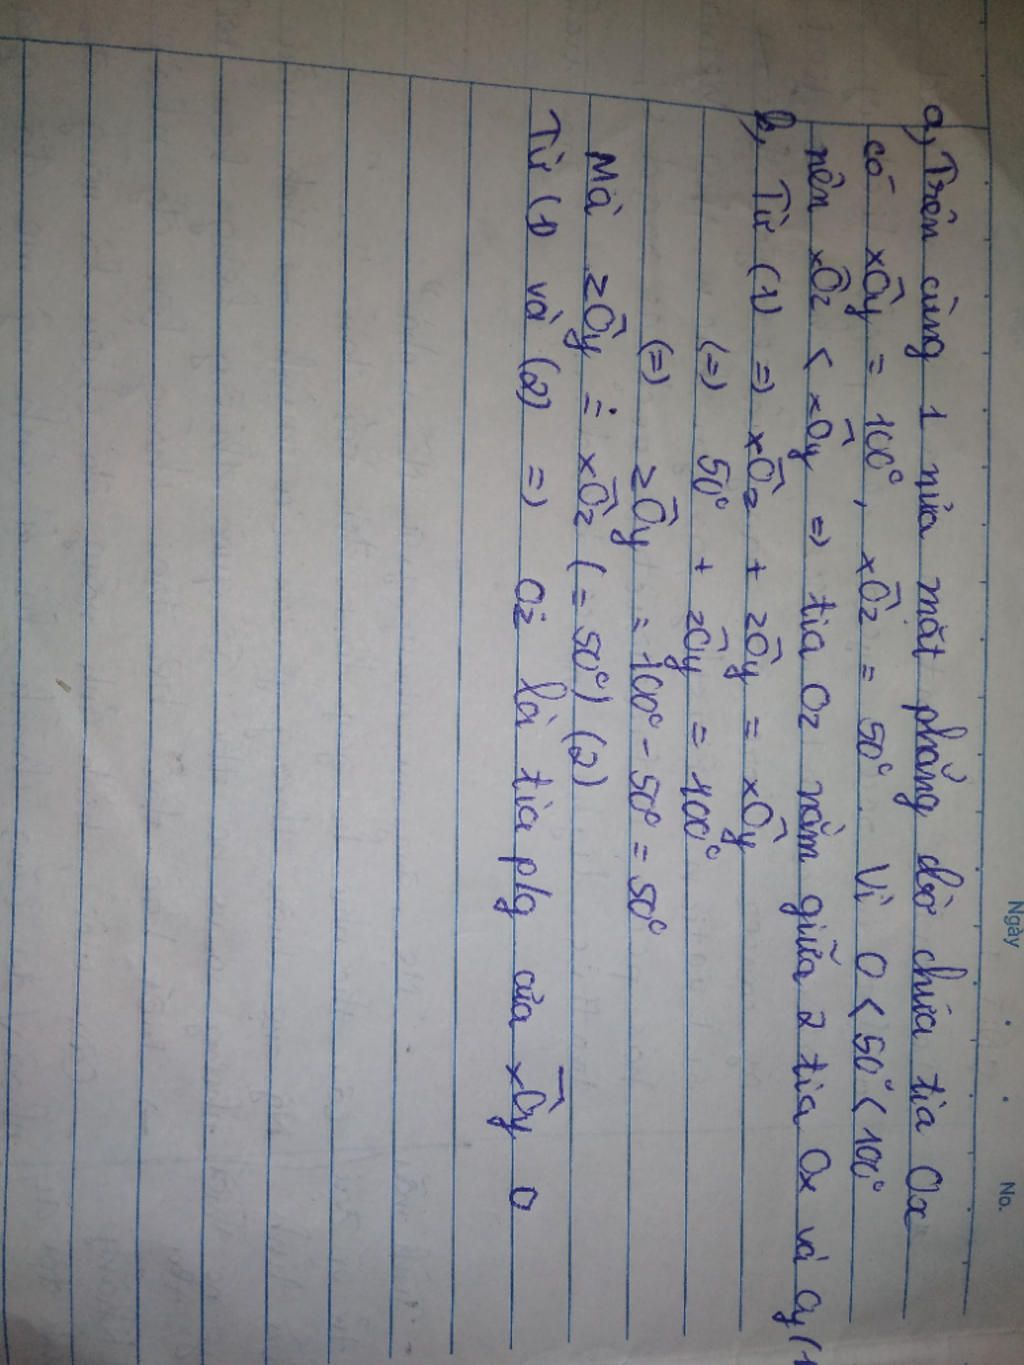 Ngày
No.
a, Trên cùng 1 nửa mặt phẳng bờ chứa tia Ox
có xÔy = 100°, xÔz = 50°. Vì 0 < 50° < 100°
nên xÔz < xÔy => tia Oz nằm giữa 2 tia Ox và Oy (1
b, Từ (1) => xÔz + zÔy = xÔy
(=) 50° + zÔy = 100°
(=) zÔy = 100° - 50° = 50°
Mà zÔy = xÔz (= 50°) (2)
Từ (1) và (2) => Oz là tia p/g của xÔy